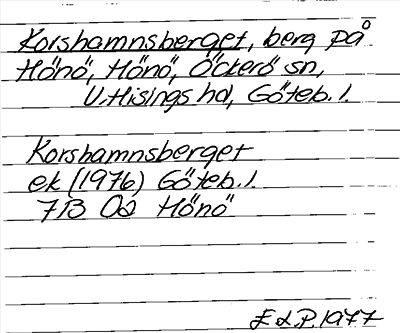 Korshamnsberget, berg på
Hönö, Hönö, Öckerö sn,
V. Hisings hd, Göteb. l.
Korshamnsberget
ek (1976) Göteb. l.
7B 0a Hönö
E d P. 1977